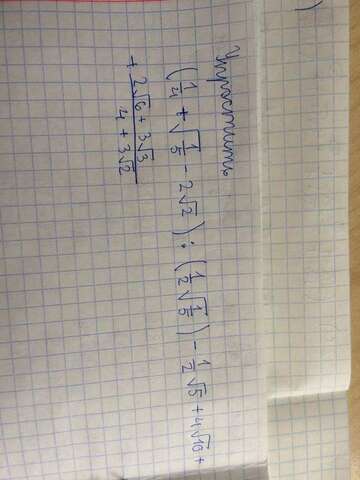 Упростить
(1/4 + √(1/5) - 2√2) : (1/2 √(1/5)) - 1/2 √5 + 4√10 +
+ (2√6 + 3√3)/(4 + 3√2)